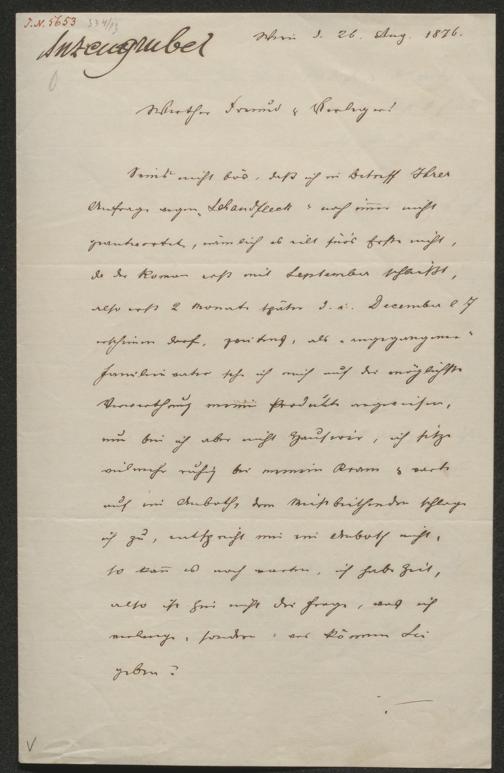 J.N. 5653
Anzengruber
Wien d. 26. Aug. 1876.
Werther Freund & Verleger!
Seins nicht bös, daß ich in Betreff Ihrer
Anfrage wegen „Schandfleck“ noch im̅er nicht
geantwortet, nämlich es eilt für's Erste nicht,
da der Roman erst mit September schließt,
also erst 2 Monate später d. i. December
erscheinen darf, zweitens, als „angegangener“
Familienvater sehe ich mich auf die möglichste
Verwerthung meiner Produkte angewiesen,
nun bin ich aber nicht Hausirer, ich sitze
vielmehr ruhig bei meinem Kram & warte
auf ein Anboth, dem Meistbiethenden schlage
ich zu, entspricht mir ein Anboth nicht,
so kan̅ es noch warten, ich habe Zeit,
also ist hier nicht die Frage, was ich
verlange, sondern: was können Sie
geben?